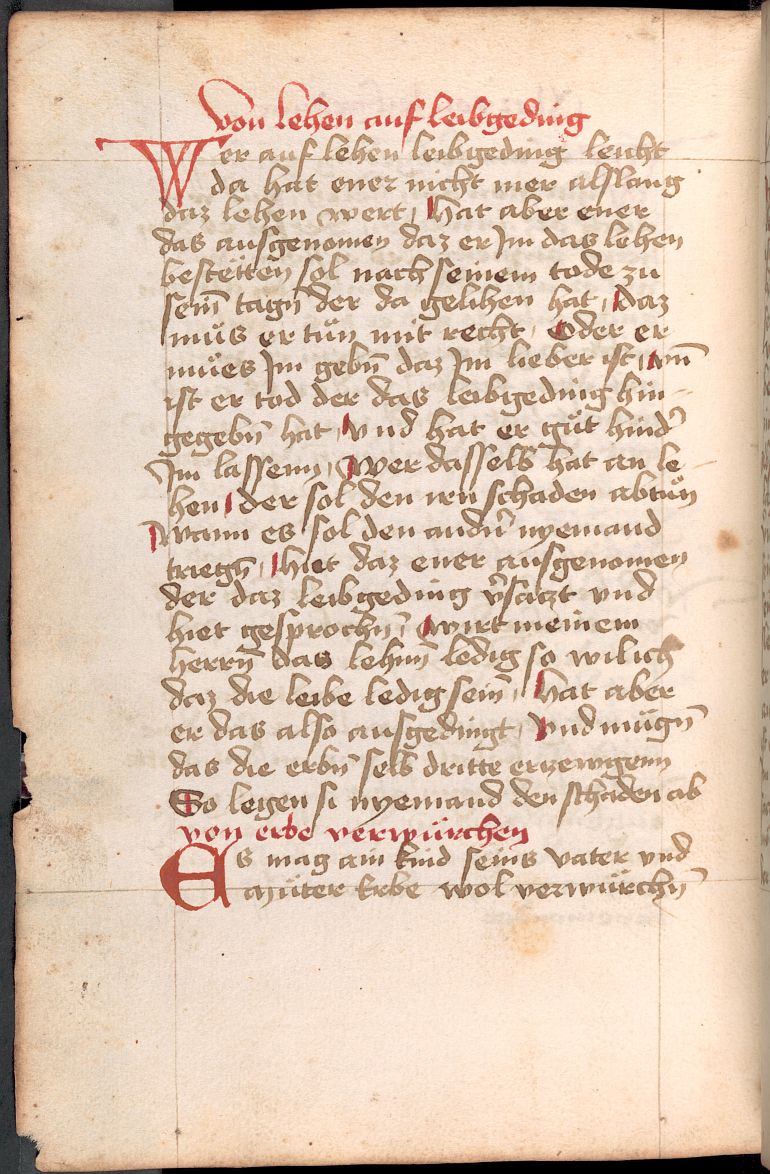 von lehen auf leibgeding
Wer auf lehen leibgeding leicht
da hat ener nicht mer alslang
daz lehen wert, Hat aber ener
das ausgenomen daz er Jm das lehen
bestëtten sol nach seinem tode zu
sein̄ tagn̄ der da gelihen hat, Daz
müs er tün mit recht, Oder er
mües Jm gebn̄ daz Jm lieber ist, wn̄
ist er tod der das leibgeding hin-
gegebn̄ hat, Vnd hat er güt hind̾
Jm lassenn, Wer dasselb hat an le-
hen, der sol den irn schaden abtün
Wann es sol den andn̄ nyemand
triegn̄, Hiet daz ener ausgenomen
der daz leibgeding v̾saczt vnd
hiet gesprochn̄, wirt meinem
herrn̄ das lehnn̄ ledig so wil ich
daz die leibe ledig sein̄, Hat aber
er das also ausgedingt, Vnd mügn̄
das die erbn̄ selb dritte erzewgenn
So legen si nyemand den schaden ab
von erbe verwürchen
Es mag ain kind seins vater vnd
müter Erbe wol verwürchn̄